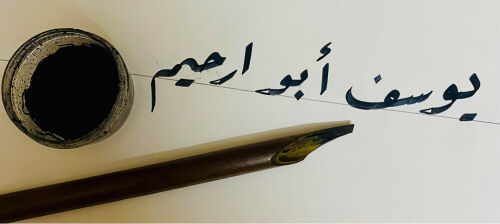 يوسف أبو ارحيم